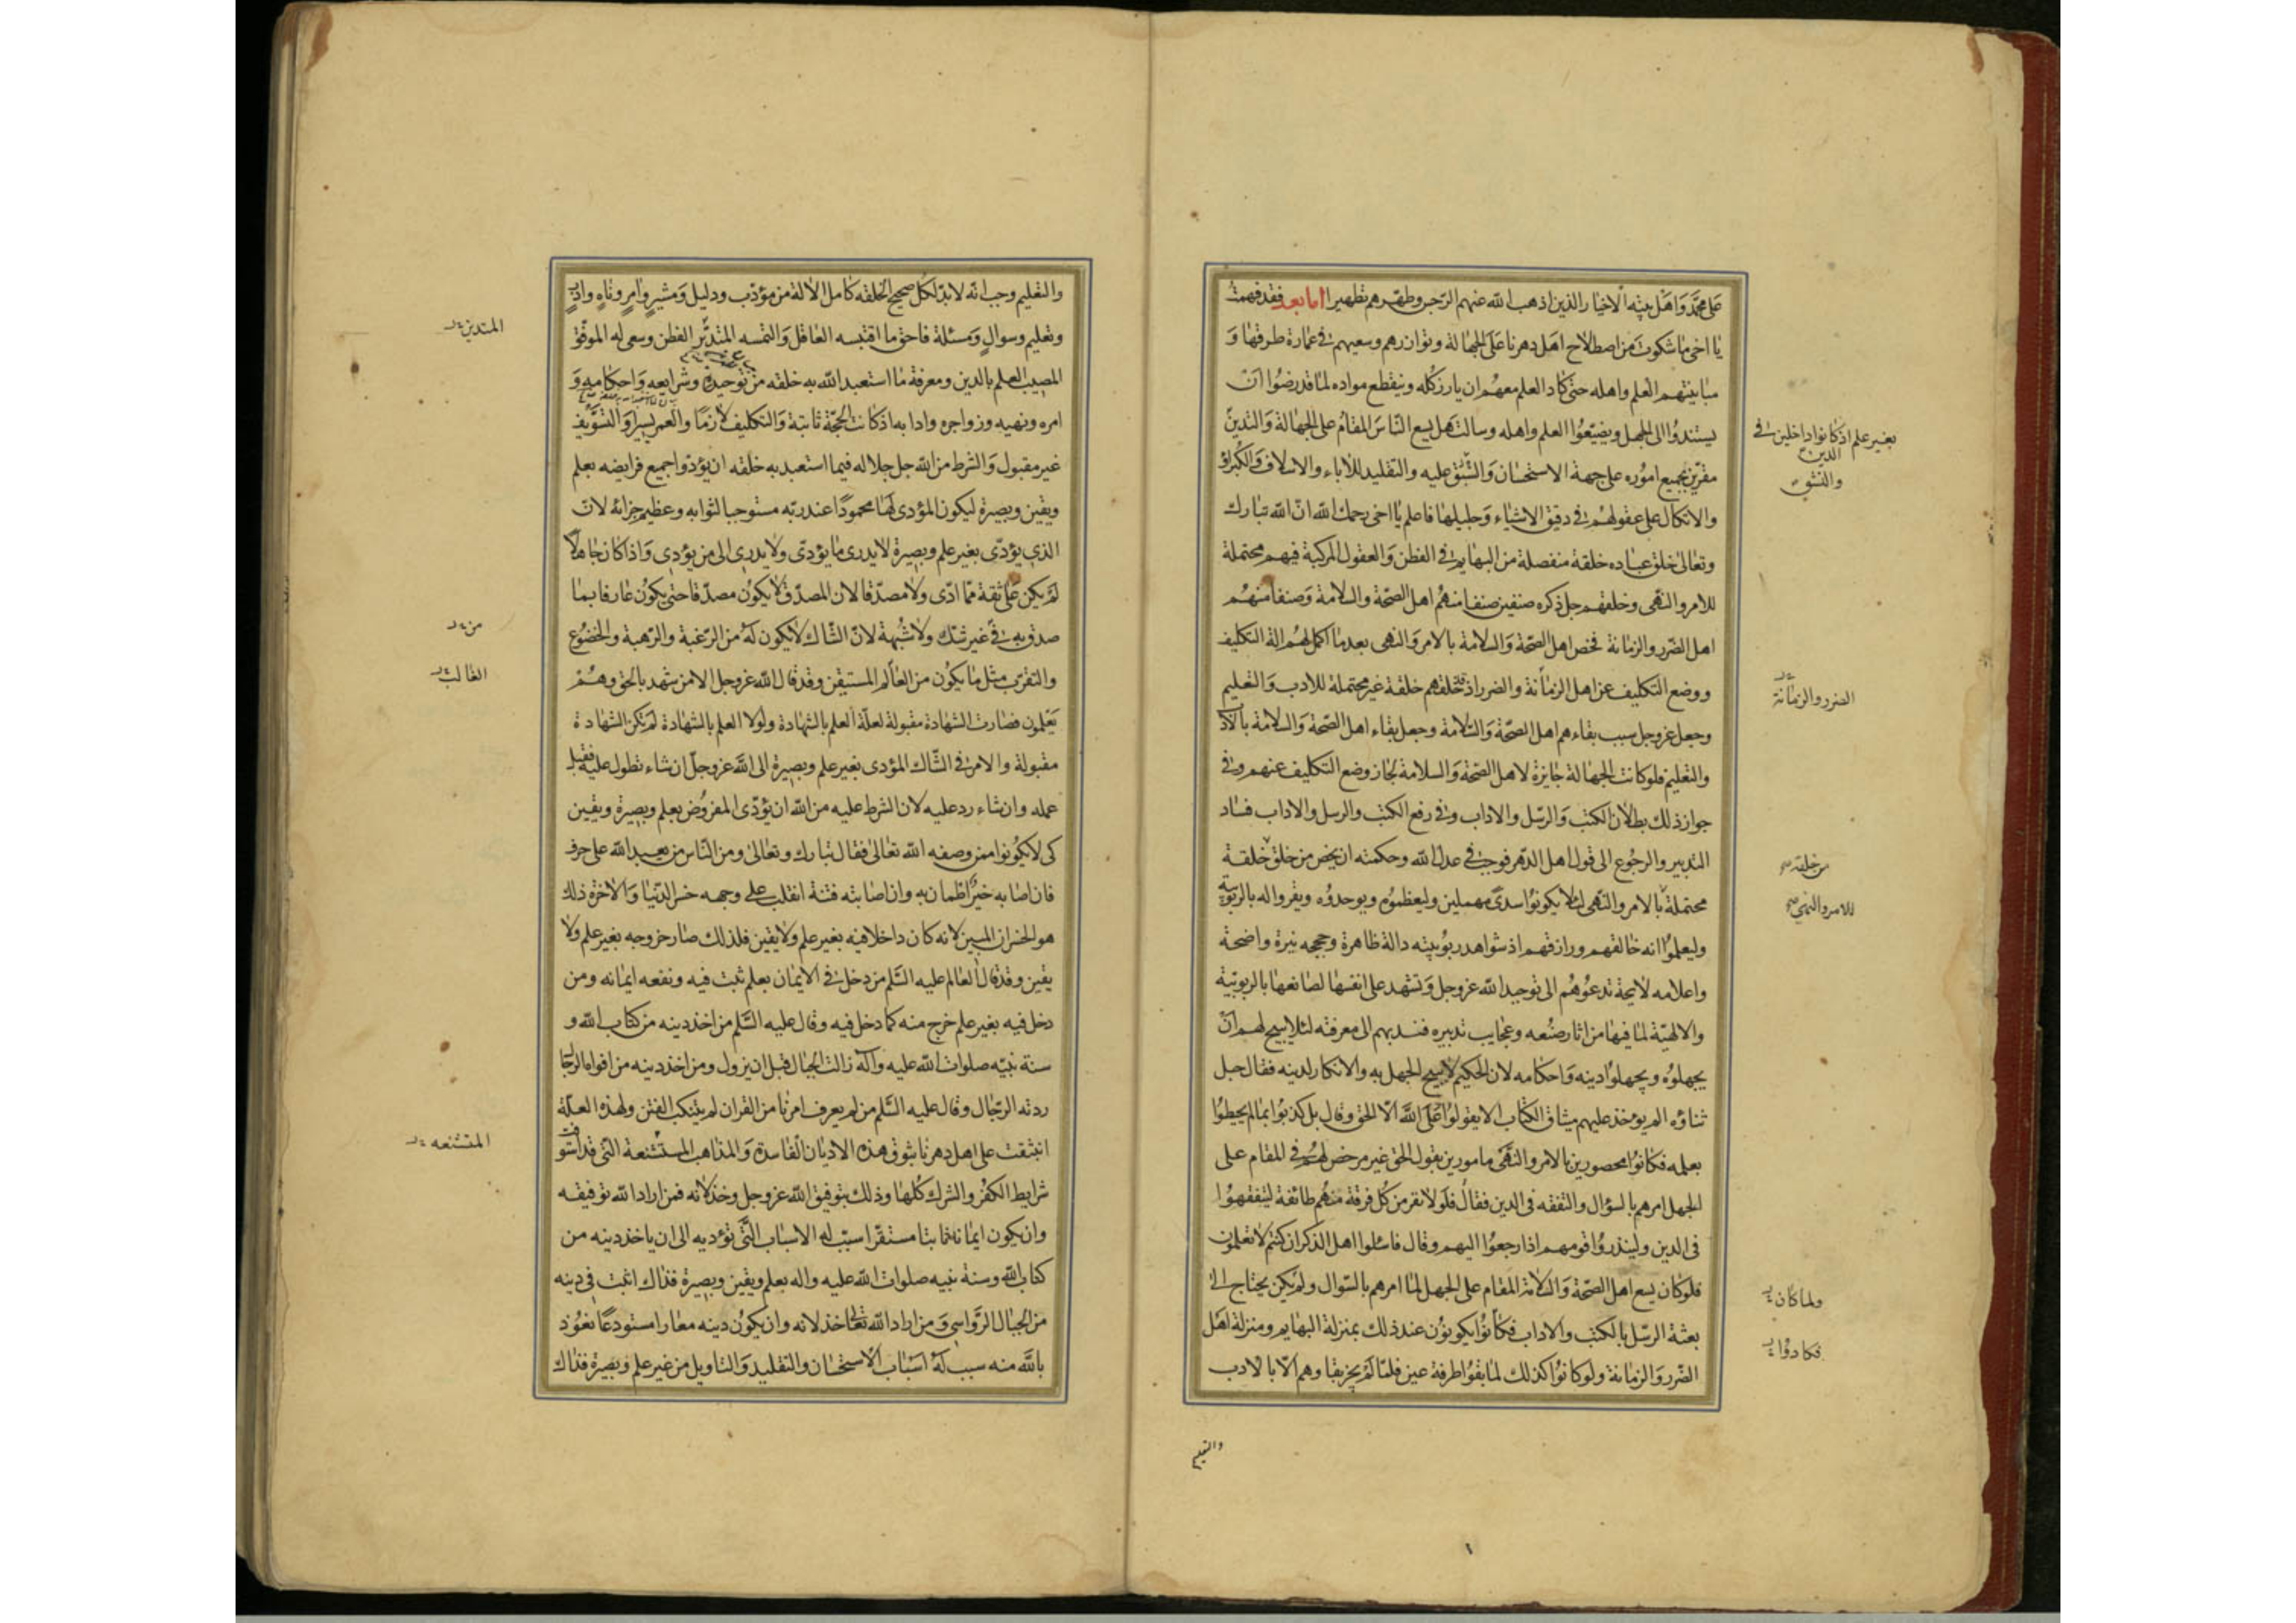 على محمد واهل بيته الاخيار الذين اذهب الله عنهم الرجس وطهرهم تطهيرا اما بعد فقد فهمت
يا اخى ما شكوت من اصطلاح اهل دهرنا على الجهالة وتوازرهم وسعيهم فى عمارة طرقها و
مباينتهم العلم واهله حتى كاد العلم معهم ان يارز كله وينقطع مواده لما قد رضوا ان
يستندوا الى الجهل ويضيعوا العلم واهله وسالت هل يسع الناس المقام على الجهالة والتدين
مقرين بجميع اموره على جهة الاستحسان والسبق عليه والتقليد للاباء والاسلاف والكبراء
والاتكال على عقولهم فى دقيق الاشياء وجليلها فاعلم يا اخى رحمك الله ان الله تبارك
وتعالى خلق عباده خلقة منفصلة من البهايم فى الفطن والعقول المركبة فيهم محتملة
للامر والنهى وخلقهم جل ذكره صنفين صنفا منهم اهل الصحة والسلامة وصنفا منهم
اهل الضرر والزمانة فخص اهل الصحة والسلامة بالامر والنهى بعد ما اكمل لهم الة التكليف
ووضع التكليف عن اهل الزمانة والضرر اذ قد خلقهم خلقة غير محتملة للادب والتعليم
وجعل عز وجل سبب بقاءهم اهل الصحة والسلامة وجعل بقاء اهل الصحة والسلامة بالاد
والتعليم فلو كانت الجهالة جايزة لاهل الصحة والسلامة لجاز وضع التكليف عنهم وفى
جواز ذلك بطلان الكتب والرسل والاداب وفى رفع الكتب والرسل والاداب فساد
التدبير والرجوع الى قول اهل الدهر فوجب فى عدل الله وحكمته ان يخص من خلق خلقة
محتملة بالامر والنهى لئلا يكونوا سدى مهملين وليعظموه ويوحدوه ويقروا له بالربوبية
وليعلموا انه خالقهم ورازقهم اذ شواهد ربوبيته دالة ظاهرة وحججه نيرة واضحة
واعلامه لايحة تدعوهم الى توحيد الله عز وجل وتشهد على انفسها لصانعها بالربوبية
والالهية لما فيها من اثار صنعه وعجايب تدبيره فندبهم الى معرفته لئلا يبيح لهم ان
يجهلوه ويجهلوا دينه واحكامه لان الحكيم لا يبيح الجهل به والانكار لدينه فقال جل
ثناؤه الم يؤخذ عليهم ميثاق الكتاب الا يقولوا على الله الا الحق وقال بل كذبوا بما لم يحيطوا
بعلمه فكانوا محصورين بالامر والنهى مامورين بقول الحق غير مرخص لهم فى المقام على
الجهل امرهم بالسؤال والتفقه فى الدين فقال فلولا نفر من كل فرقة منهم طائفة ليتفقهوا
فى الدين ولينذروا قومهم اذا رجعوا اليهم وقال فاسئلوا اهل الذكر ان كنتم لا تعلمون
فلو كان يسع اهل الصحة والسلامة المقام على الجهل لما امرهم بالسوال ولم يكن يحتاج الى
بعثة الرسل بالكتب والاداب فكانوا يكونون عند ذلك بمنزلة البهايم ومنزلة اهل
الضرر والزمانة ولو كانوا كذلك لما بقوا طرفة عين فلما لم يجز بقاوهم الا بالادب
بغير علم اذ كانوا داخلين فى
الدين
والنشق
الضرر والزمانة
من خلقه
للامر والنهى
ولما كان
فكادوا
والتعليم
والتعليم وجب انه لابد لكل صحيح الخلقه كامل الالة من مؤدب ودليل ومشير وامر وناه واد
وتعليم وسوال ومسئلة فاحق ما اقتبسه العاقل والتمسه المتدبر الفطن وسعى له الموفق
المصيب العلم بالدين ومعرفة ما استعبد الله به خلقه من توحيده وشرايعه واحكامه و
امره ونهيه وزواجره وادابه اذ كانت الحجة ثابتة والتكليف لازما والعمر يسيرا والتسويف
غير مقبول والشرط من الله جل جلاله فيما استعبد به خلقه ان يؤدوا جميع فرايضه بعلم
ويقين وبصيرة ليكون المؤدى لها محمودا عند ربه مستوجبا لثوابه وعظيم جزائه لان
الذى يؤدى بغير علم وبصيرة لا يدرى ما يؤدى ولا يدرى الى من يؤدى واذا كان جاهلا
لم يكن على ثقة مما ادى ولا مصدقا لان المصدق لا يكون مصدقا حتى يكون عارفا بما
صدق به فى غير شك ولا شبهة لان الشاك لا يكون له من الرغبة والرهبة والخضوع
والتقرب مثل ما يكون من العالم المستيقن وقد قال الله عز وجل الا من شهد بالحق وهم
يعلمون فصارت الشهادة مقبولة لعلة العلم بالشهادة ولولا العلم بالشهادة لم تكن الشهادة
مقبولة والامر فى الشاك المؤدى بغير علم وبصيرة الى الله عز وجل ان شاء تطول عليه فقبل
عمله وان شاء رد عليه لان الشرط عليه من الله ان يؤدى المفروض بعلم وبصيرة ويقين
كى لا يكونوا ممن وصفه الله تعالى فقال تبارك وتعالى ومن الناس من يعبد الله على حرف
فان اصابه خير اطمان به وان اصابته فتنة انقلب على وجهه خسر الدنيا والاخرة ذلك
هو الخسران المبين لانه كان داخلا فيه بغير علم ولا يقين فلذلك صار خروجه بغير علم ولا
يقين وقد قال العالم عليه السلم من دخل فى الايمان بعلم ثبت فيه ونفعه ايمانه ومن
دخل فيه بغير علم خرج منه كما دخل فيه وقال عليه السلم من اخذ دينه من كتاب الله و
سنة نبيه صلوات الله عليه واله زالت الجبال قبل ان يزول ومن اخذ دينه من افواه الرجا
ردته الرجال وقال عليه السلم من لم يعرف امرنا من القران لم يتنكب الفتن ولهذه العلة
انبثقت على اهل دهرنا بثوق هذه الاديان الفاسدة والمذاهب المستشنعة التى قد استوفت
شرايط الكفر والشرك كلها وذلك بتوفيق الله عز وجل وخذلانه فمن اراد الله توفيقه
وان يكون ايمانه ثابتا مستقرا سبب له الاسباب التى تؤديه الى ان ياخذ دينه من
كتاب الله وسنة نبيه صلوات الله عليه واله بعلم ويقين وبصيرة فذاك اثبت فى دينه
من الجبال الرواسى ومن اراد الله تعالى خذلانه وان يكون دينه معارا مستودعا نعوذ
بالله منه سبب له اسباب الاستحسان والتقليد والتاويل من غير علم وبصيرة فذاك
المتدين
من
الغالب
المتشنعه